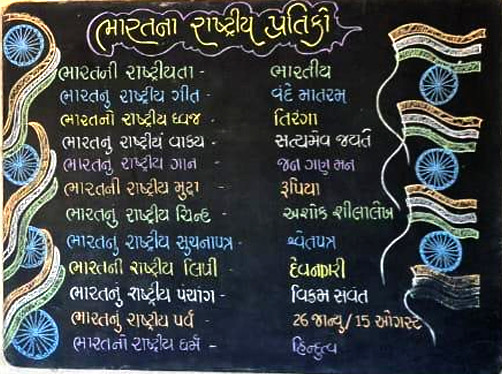 ભારતના રાષ્ટ્રીય પ્રતિકો
ભારતની રાષ્ટ્રીયતા - ભારતીય
ભારતનુ રાષ્ટ્રીય ગીત - વંદે માતરમ
ભારતનો રાષ્ટ્રીય ધ્વજ - તિરંગા
ભારતનું રાષ્ટ્રીય વાક્ય - સત્યમેવ જયતે
ભારતનુ રાષ્ટ્રીય ગાન - જન ગણ મન
ભારતની રાષ્ટ્રીય મુદ્રા - રૂપિયા
ભારતનું રાષ્ટ્રીય ચિન્હ - અશોક શીલાલેખ
ભારતનું રાષ્ટ્રીય સુચનાપત્ર - શ્વેતપત્ર
ભારતની રાષ્ટ્રીય લિપી - દેવનાગરી
ભારતનું રાષ્ટ્રીય પંચાંગ - વિક્રમ સંવત
ભારતનું રાષ્ટ્રીય પર્વ - 26 જાન્યુ/15 ઓગસ્ટ
ભારતનો રાષ્ટ્રીય ધર્મ - હિન્દુત્વ